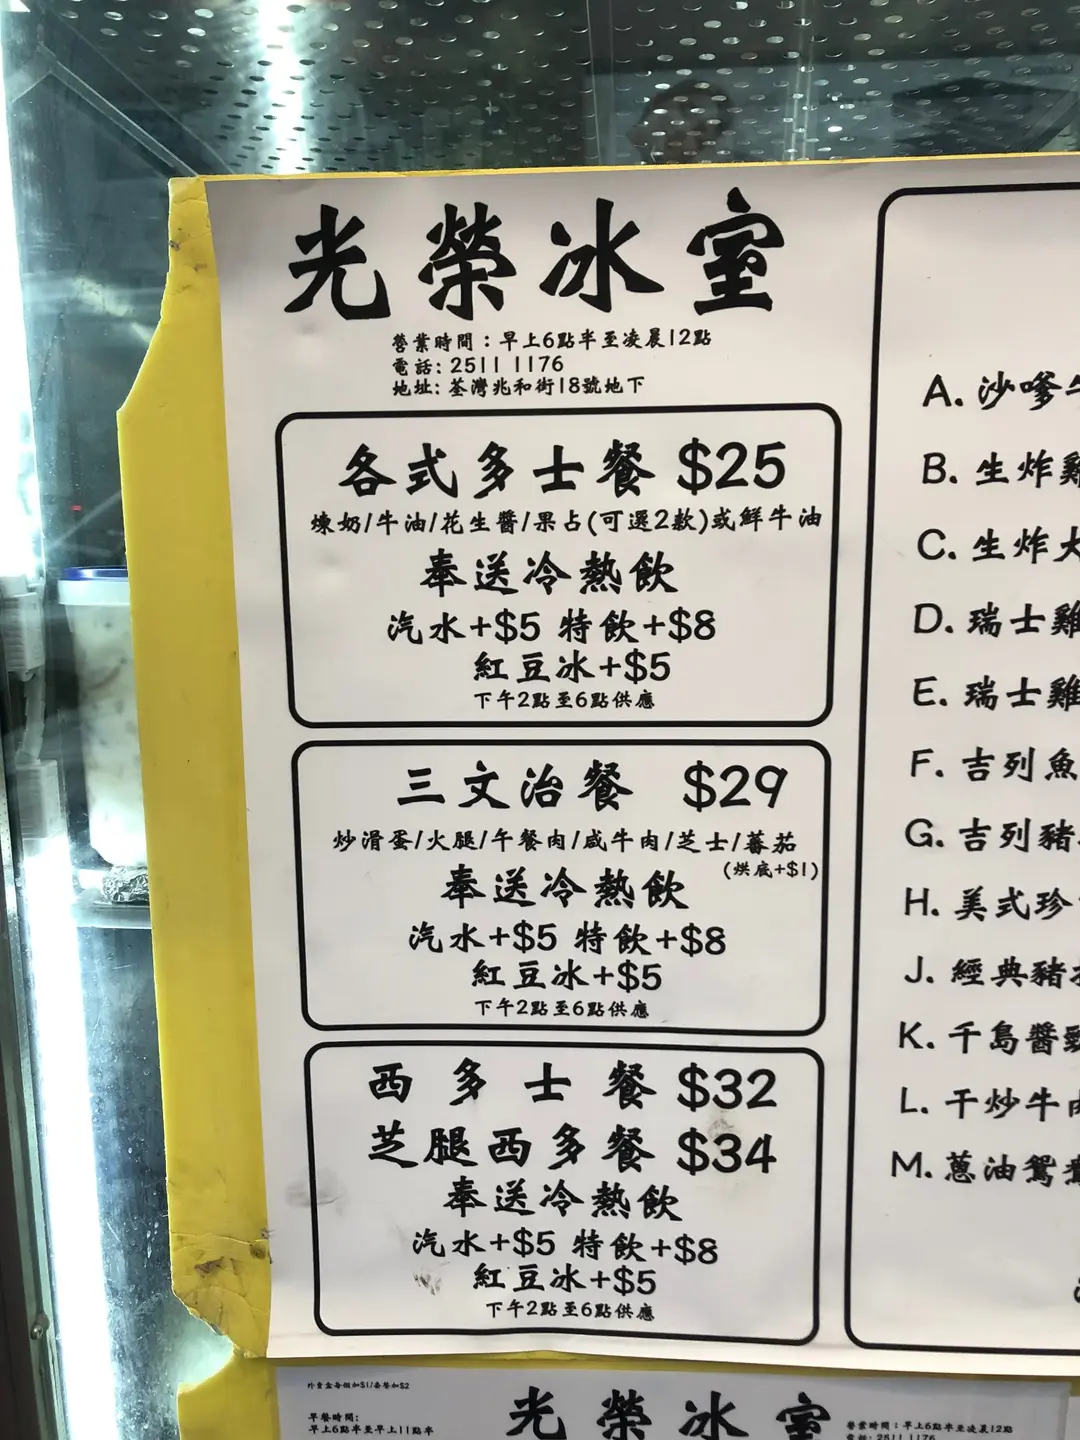 光榮冰室
營業時間：早上6點半至凌晨12點
電話: 2511 1176
地址: 荃灣兆和街18號地下
各式多士餐 $25
煉奶/牛油/花生醬/果占(可選2款)或鮮牛油
奉送冷熱飲
汽水+$5 特飲+$8
紅豆冰+$5
下午2點至6點供應
三文治餐 $29
炒滑蛋/火腿/午餐肉/咸牛肉/芝士/蕃茄
(烘底+$1)
奉送冷熱飲
汽水+$5 特飲+$8
紅豆冰+$5
下午2點至6點供應
西多士餐 $32
芝腿西多餐 $34
奉送冷熱飲
汽水+$5 特飲+$8
紅豆冰+$5
下午2點至6點供應
A. 沙嗲牛
B. 生炸雞
C. 生炸大
D. 瑞士雞
E. 瑞士雞
F. 吉列魚
G. 吉列豬
H. 美式珍
J. 經典豬
K. 千島醬
L. 干炒牛
M. 蔥油鴛
外賣盒每個加$1/套餐加$2
早餐時間:
早上6點半至早上11點半
光榮冰室
營業時間：早上6點半至凌晨12點
電話: 2511 1176